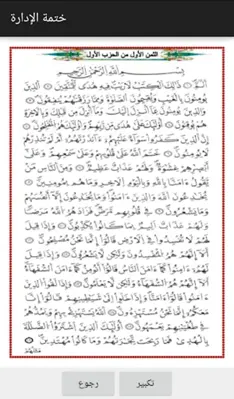 ختمة الإدارة
الثمن الأول من الحزب الأول
بسم الله الرحمن الرحيم
ألم ذلك الكتب لا ريب فيه هدى للمتقين الذين
يومنون بالغيب ويقيمون الصلوة ومما رزقنهم ينفقون
والذين يومنون بما أنزل إليك وما أنزل من قبلك وبالاخرة
هم يوقنون أولئك على هدى من ربهم وأولئك هم المفلحون
إن الذين كفروا سواء عليهم ءانذرتهم أم لم تنذرهم
لا يومنون ختم الله على قلوبهم وعلى سمعهم وعلى
أبصرهم غشوة ولهم عذاب عظيم ومن الناس من
يقول ءامنا بالله وباليوم الاخر وما هم بمومنين
يخدعون الله والذين ءامنوا وما يخدعون إلا أنفسهم
وما يشعرون في قلوبهم مرض فزادهم الله مرضا
ولهم عذاب اليم بما كانوا يكذبون وإذا قيل
لهم لا تفسدوا في الارض قالوا إنما نحن مصلحون
ألا إنهم هم المفسدون ولكن لا يشعرون وإذا قيل
لهم ءامنوا كما ءامن الناس قالوا أنومن كما ءامن السفهاء
ألا إنهم هم السفهاء ولكن لا يعلمون وإذا لقوا الذين
ءامنوا قالوا ءامنا وإذا خلوا إلى شيطينهم قالوا إنا
معكم إنما نحن مستهزءون الله يستهزئ بهم ويمدهم
في طغينهم يعمهون أولئك الذين اشتروا الضللة
بالهدى فما ربحت تجرتهم وما كانوا مهتدين
مثلهم
تكبير
رجوع